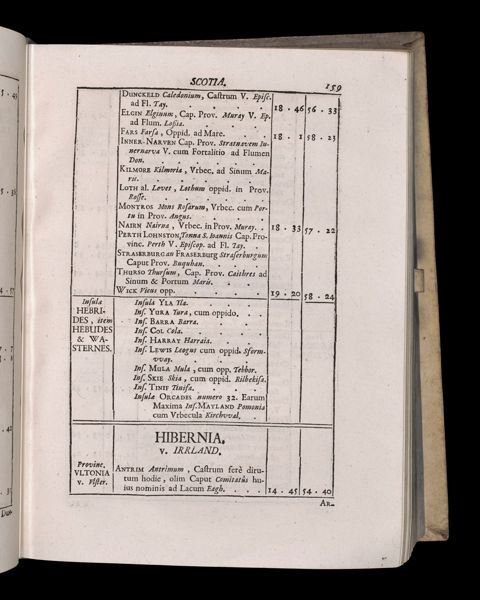 SCOTIA.
159
DUNCKELD Caledonium, Castrum V. Episc.
ad Fl. Tay. 18 . 46 56 . 33
ELGIN Elginum, Cap. Prov. Muray V. Ep.
ad Flum. Loßia.
FARS Farsa, Oppid. ad Mare. 18 . 1 58 . 23
INNER-NARVEN Cap. Prov. Stratnavem In-
nernarva V. cum Fortalitio ad Flumen
Don.
KILMORE Kilmoria, Vrbec. ad Sinum Ma-
ris.
LOTH al. Lovet, Lothum oppid. in Prov.
Rosse.
MONTROS Mons Rosarum, Vrbec. cum Por-
tu in Prov. Angus.
NAIRN Nairna, Vrbec. in Prov. Muray. 18 . 33 57 . 22
PERTH LOHNSTON, Fanum S. Ioannis Cap. Pro-
vinc. Perth V. Episcop. ad Fl. Tay.
STRASERBURGAW FRASERBURG Straserburgum
Caput Prov. Buquhan.
THURSO Thursum, Cap. Prov. Caithnes ad
Sinum & Portum Maris.
WICK Vicus opp. 19 . 20 58 . 24
Insula
HEBRI-
DES, item
HEBUDES
& WA-
STERNES.
Insula YLA Ila.
Ins. YURA Yura, cum oppido.
Ins. BARRA Barra.
Ins. COL Cola.
Ins. HARRAY Harraia.
Ins. LEWIS Leogus cum oppid. Sform-
vvay.
Ins. MULA Mula, cum opp. Tobbor.
Ins. SKIE Skia, cum oppid. Rilbekisa.
Ins. TINIF Tinisa.
Insula ORCADES numero 32. Earum
Maxima Ins. MAYLAND Pomonia
cum Vrbecula Kirchvval.
HIBERNIA,
v. IRRLAND.
Provinc.
VLTONIA
v. Vlster.
ANTRIM Antrimum, Castrum ferè diru-
tum hodie, olim Caput Comitatûs hu-
ius nominis ad Lacum Eagh. 14 . 45 54 . 40
AR-